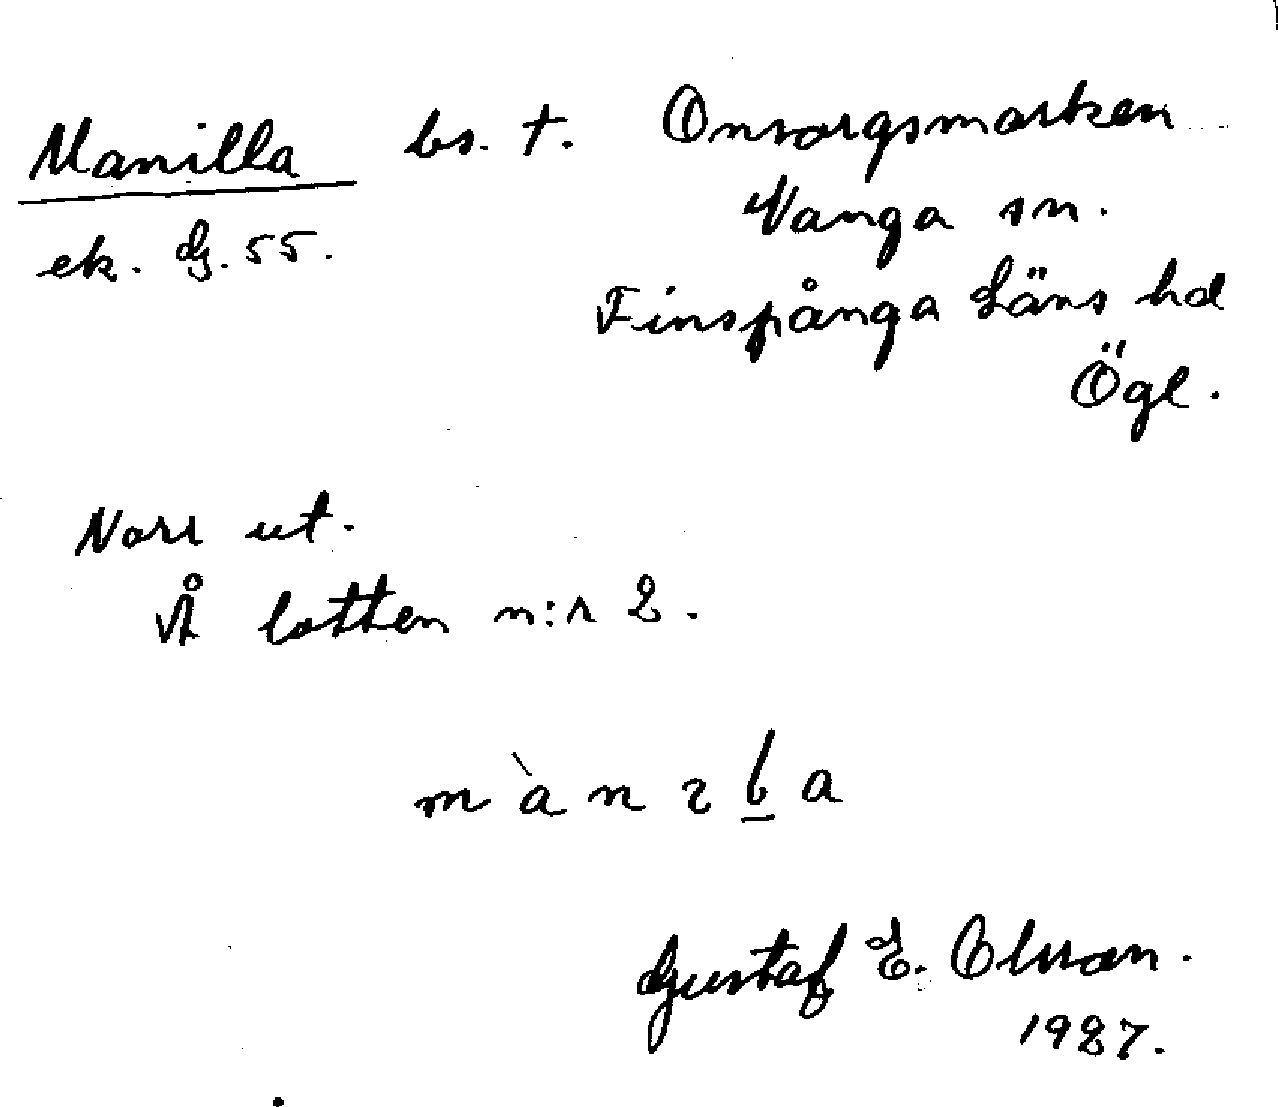 Manilla bs. t. Onsorgsmarken
Vånga sn.
ek. dg. 55.
Finspånga Läns hd
Ögl.
Norr ut.
Å lotten n:r 2.
m à n ı l a
Gustaf E. Olsson.
1927.